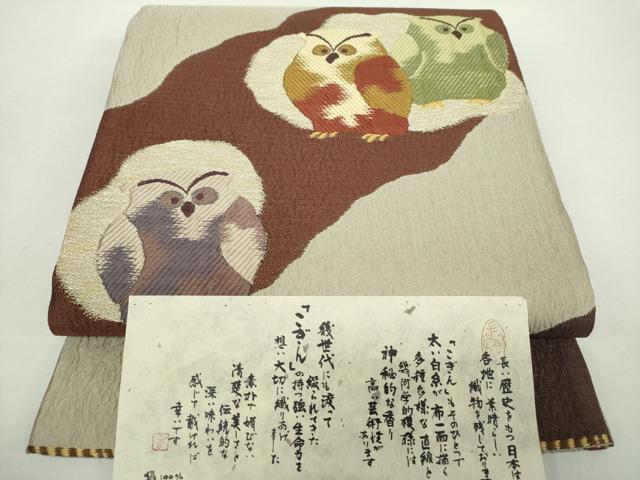 長い歴史をもつ日本は
各地に素晴らしい
織物を残しております
「こぎん」もそのひとつで
太い白糸が布一面に描く
多種多様な直線と
幾何学的模様には
神秘的な香り
高い芸術性が
あります
幾世代にも渡って
綴られてきた
「こぎん」の持つ強い生命力を
想い大切に織りあげ
ました
素朴で媚びない
清楚な美しさと
伝統的な
深い味わいを
感じて頂ければ
幸いです
絹100%